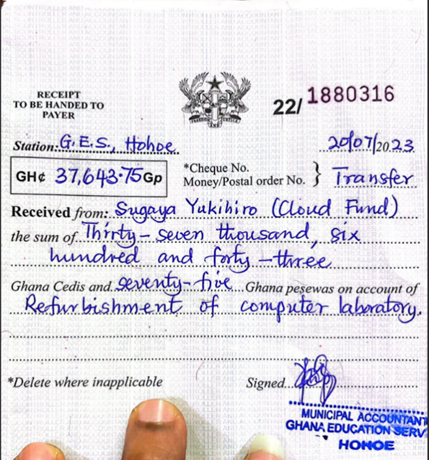 RECEIPT
TO BE HANDED TO
PAYER
22/ 1880316
Station: G.E.S., Hohoe 20/07/2023
GH¢ 37,643.75Gp
*Cheque No.
Money/Postal order No. } Transfer
Received from: Sugaya Yukihiro (Cloud Fund)
the sum of Thirty-seven thousand, six
hundred and forty-three
Ghana Cedis and seventy-five Ghana pesewas on account of
Refurbishment of computer laboratory.
*Delete where inapplicable Signed
MUNICIPAL ACCOUNTANT
GHANA EDUCATION SERV
HOHOE